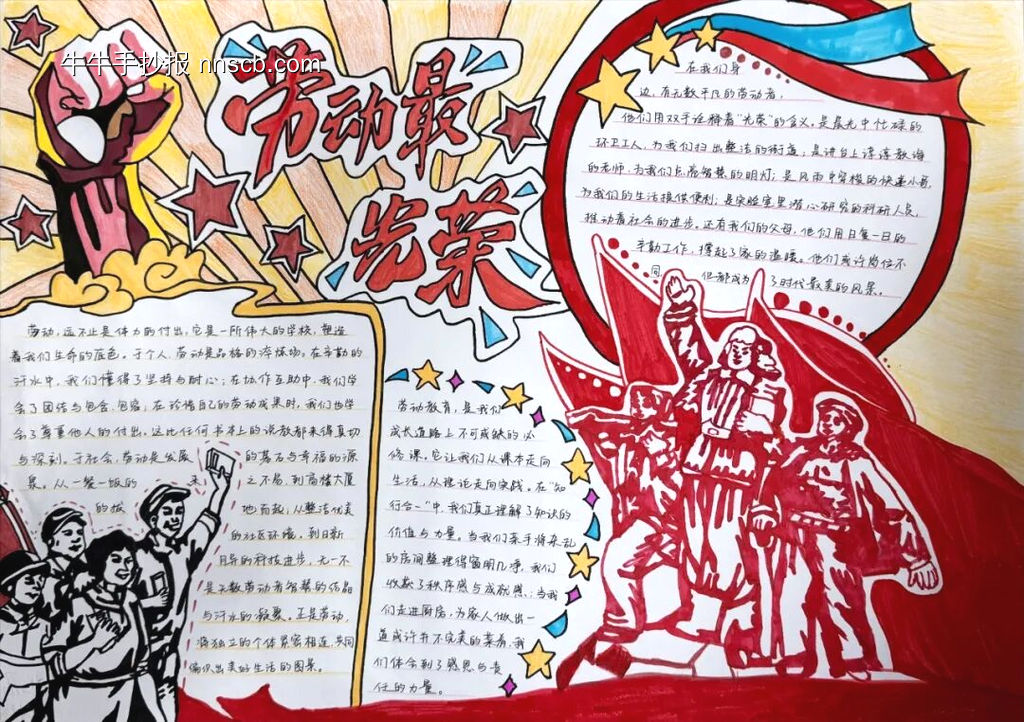 牛牛手抄报 nhscb.com
劳动最
光荣
在我们身
边,有无数平凡的劳动者,
他们用双手诠释着“光荣”的含义。是晨光中忙碌的
环卫工人,为我们扫出整洁的街道;是讲台上谆谆教诲
的老师,为我们点亮智慧的明灯;是风雨中穿梭的快递小哥,
为我们的生活提供便利;是实验室里潜心研究的科研人员,
推动着社会的进步。还有我们的父母,他们用日复一日的
辛勤工作,撑起了家的温暖。他们或许岗位不
同,但都成为了时代最美的风景。
劳动,远不止是体力的付出,它是一所伟大的学校,塑造
着我们生命的底色。于个人,劳动是品格的淬炼场。在辛勤的
汗水中,我们懂得了坚持与耐心;在协作互助中,我们学
会了团结与包含、包容;在珍惜自己的劳动成果时,我们也学
会了尊重他人的付出。这比任何书本上的说教都来得真切
与深刻。于社会,劳动是发展的基石与幸福的源
泉。从一餐一饭的来之不易,到高楼大厦
的拔地而起;从整洁优美
的社区环境,到日新
月异的科技进步,无一不
是无数劳动者智慧的结晶
与汗水的凝聚。正是劳动,
将独立的个体紧密相连,共同
编织出美好生活的图景。
劳动教育,是我们
成长道路上不可或缺的必
修课。它让我们从课本走向
生活,从理论走向实践。在“知
行合一”中,我们真正理解了知识的
价值与力量。当我们亲手将杂乱
的房间整理得窗明几净,我们
收获了秩序感与成就感;当我
们走进厨房,为家人做出一
道或许并不完美的菜肴,我
们体会到了感恩与责
任的力量。